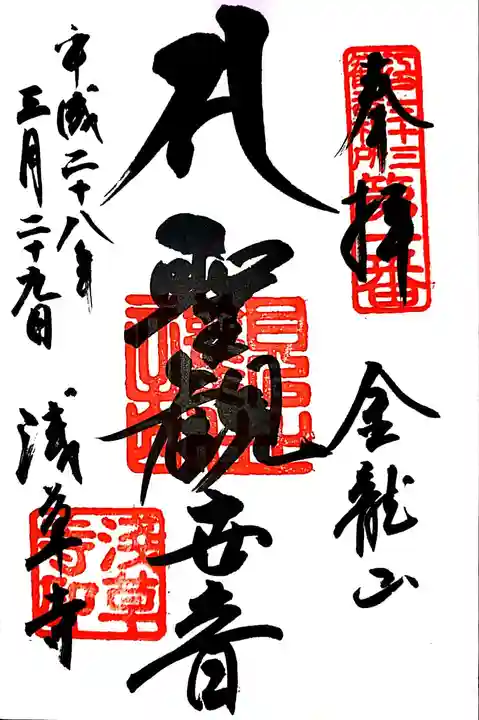 奉拝
金龍山
聖観世音
平成二十八年
三月二十九日
浅草寺
浅草
寺印